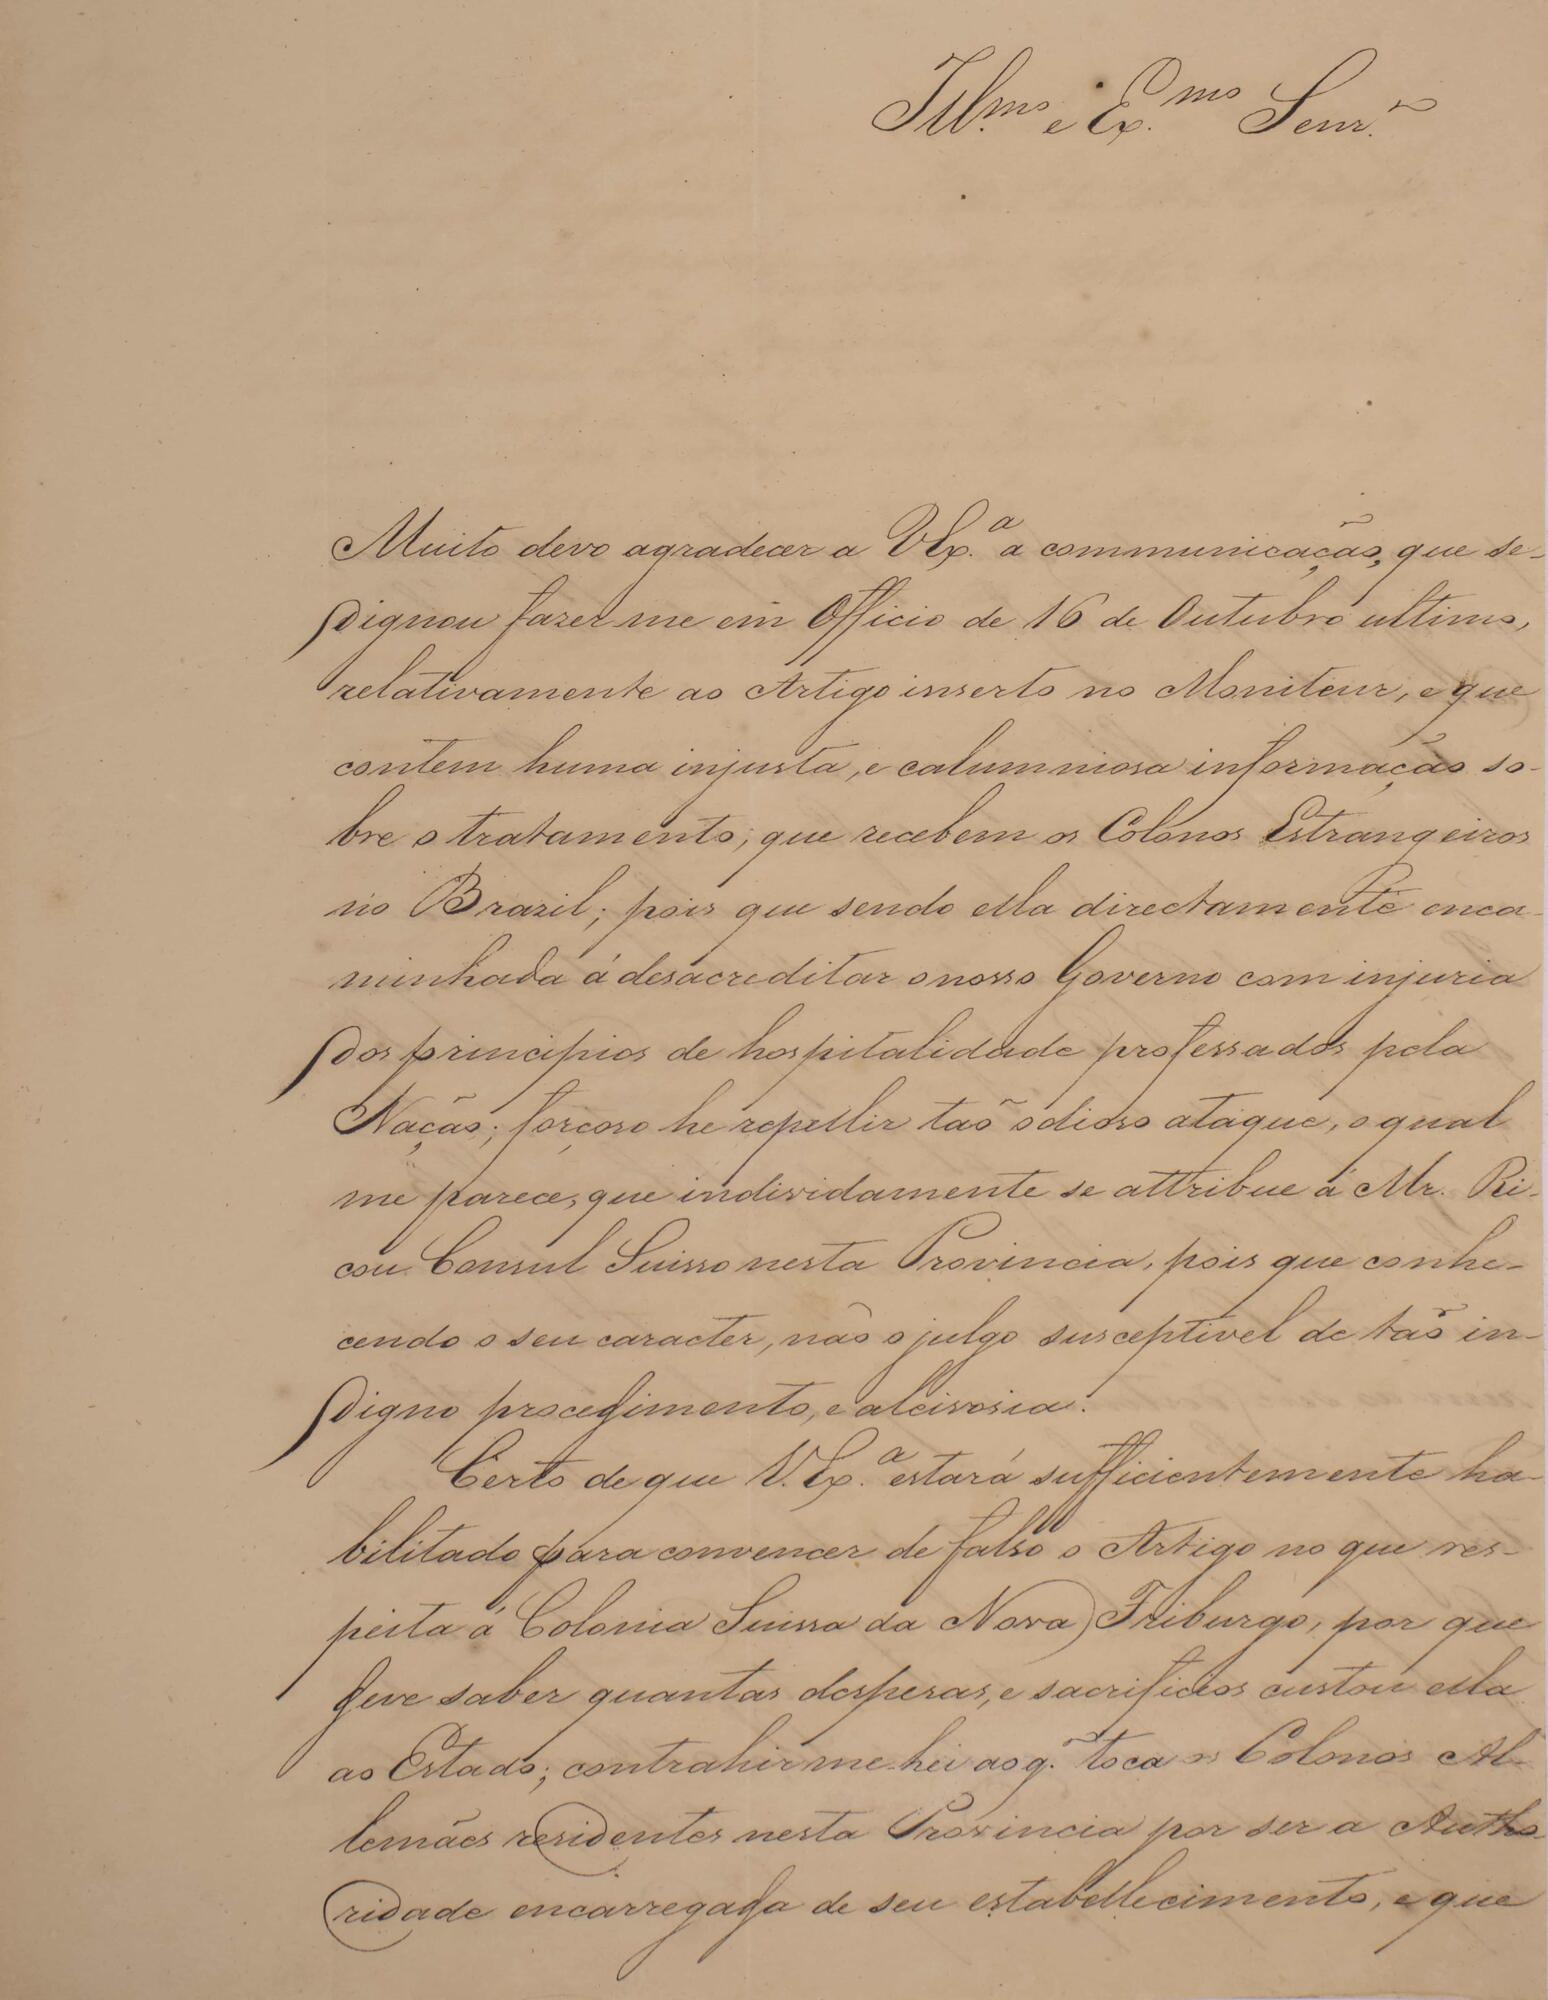 Ill.mo e Ex.mo Senr.
Muito devo agradecer a V.Ex.a a communicação, que se-
dignou fazer me em Officio de 16 de Outubro ultimo,
relativamente ao Artigo inserto no Moniteur, e que
contem huma injusta, e calumniosa informação so-
bre o tratamento, que recebem os Colonos Estrangeiros
no Brazil; pois que sendo ella directamente enca-
minhada á desacreditar o nosso Governo com injuria
dos principios de hospitalidade professados pela
Nação; forçoso he repellir tão odioso ataque, o qual
me parece, que individamente se attribue á Mr. Ri-
cou Consul Suisso nesta Provincia, pois que conhe-
cendo o seu caracter, não o julgo susceptivel de tão in-
digno procedimento, e aleivosia.
Certo de que V.Ex.a estará sufficientemente ha-
bilitado para convencer de falso o Artigo no que res-
peita á Colonia Suissa da Nova Friburgo, por que
deve saber quantas despesas, e sacrificios custou ella
ao Estado; contrahir me-hei ao q. toca os Colonos Al-
lemães residentes nesta Provincia por ser a Autho-
ridade encarregada de seu estabellecimento, e que